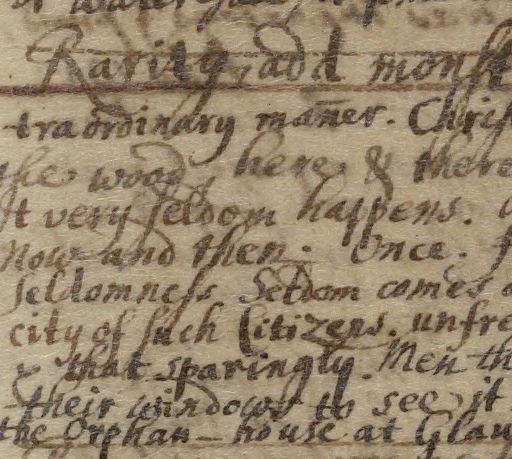 Rarity, add monst
traordinary mañer. Chris
the wood, here & there
It very seldom happens.
Now and then. Once.
seldomness Seldom comes
city of such Citizens. unfre
& that sparingly. Men th
their windows to see it
the Orphan-house at Glau